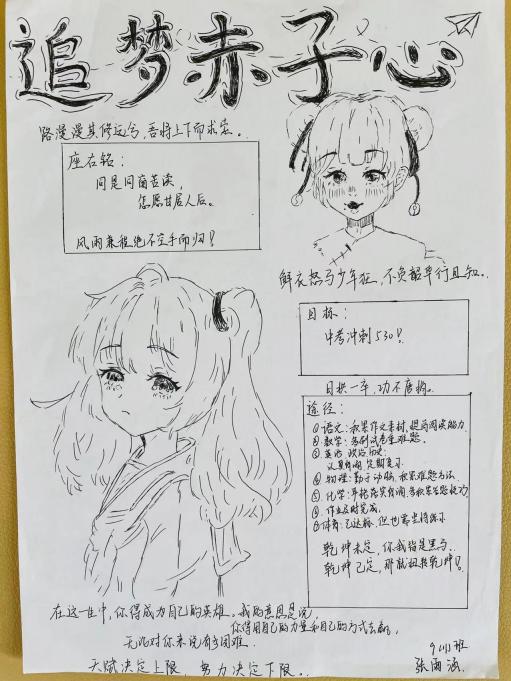 追梦赤子心
路漫漫其修远兮，吾将上下而求索。
座右铭：
同是同窗苦读，
怎愿甘居人后。
风雨兼程绝不空手而归！
鲜衣怒马少年狂，不负韶华行且知。
目标：
中考冲刺530！
日拱一卒，功不唐捐。
途径：
①语文：积累作文素材，提高阅读能力
②数学：多刷试卷重难题。
③英语 政治 历史：
认真背诵 定期复习
④物理：勤于动脑，积累难题方法
⑤化学：平格落实背诵，多积累答题技巧
⑥作业及时完成。
⑦体育：已达标，但也需坚持练习
乾坤未定，你我皆是黑马。
乾坤已定，那就扭转乾坤！
在这一生中，你得成为自己的英雄。我的意思是说，
你得用自己的力量和自己的方式去赢，
无论对你来说有多困难.
天赋决定上限，努力决定下限..
9(11)班
张雨涵